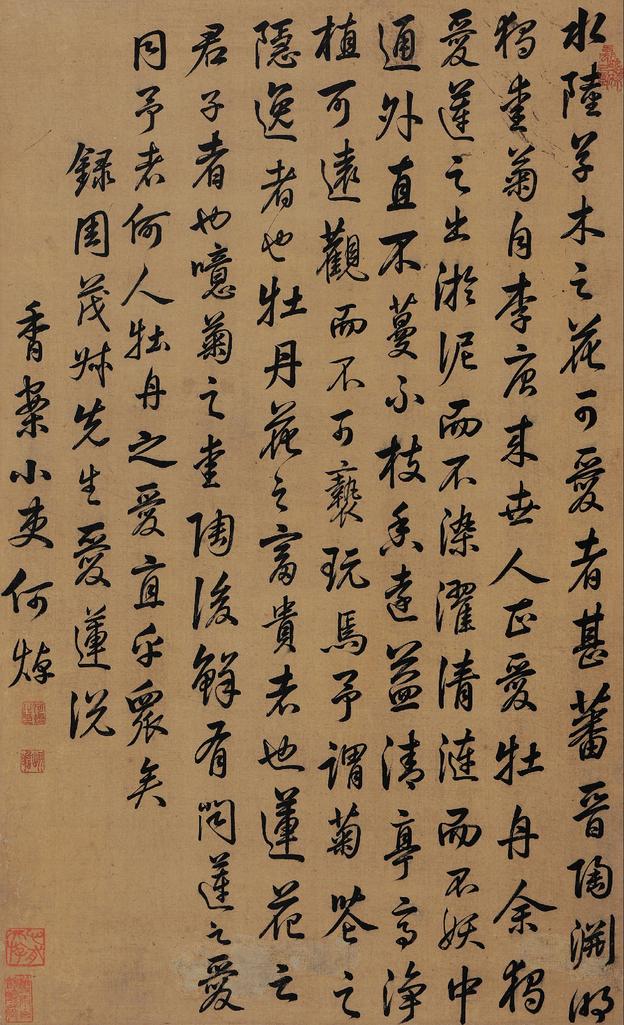 水陸草木之花可愛者甚蕃晉陶淵明
獨愛菊自李唐來世人甚愛牡丹余獨
愛蓮之出淤泥而不染濯清漣而不妖中
通外直不蔓不枝香遠益清亭亭淨
植可遠觀而不可褻玩焉予謂菊花之
隱逸者也牡丹花之富貴者也蓮花之
君子者也噫菊之愛陶後鮮有聞蓮之愛
同予者何人牡丹之愛宜乎眾矣
錄周茂叔先生愛蓮說
香案小吏何焯